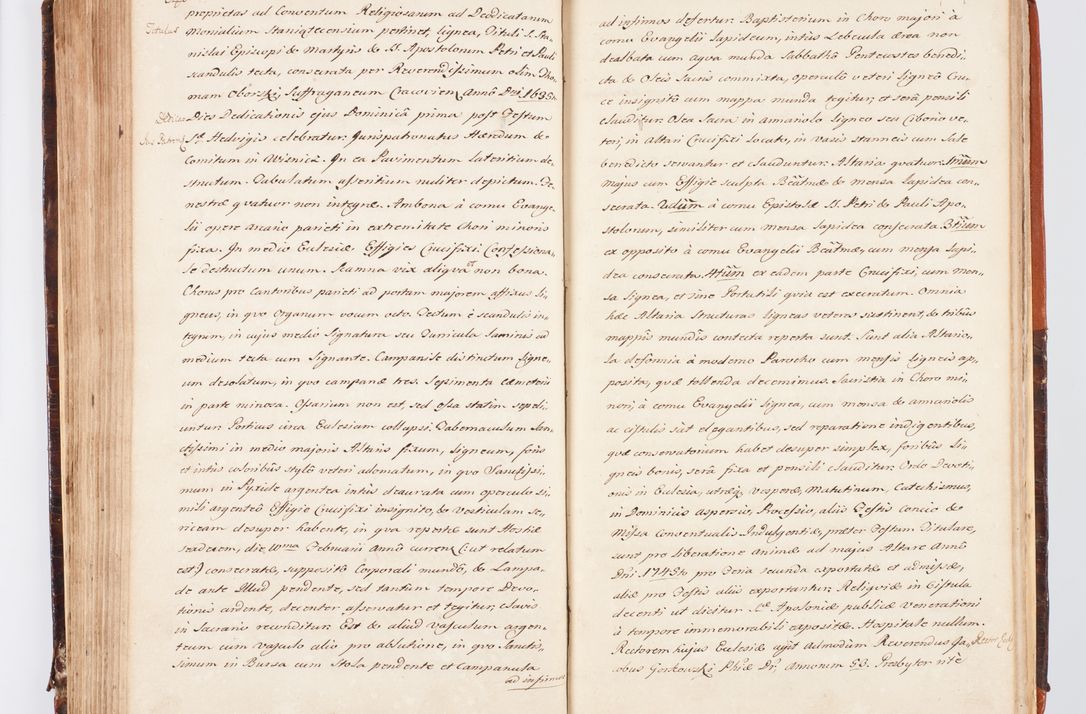 proprietas ad Conventum Religiosarum ad Dedicatarum
Titulus
Monialium Staniątecensium pertinet, lignea, Tituli S. Sta-
nislai Episcopi & Martyris & SS. Apostolorum Petri et Pauli
scandulis tecta, consecrata per Reverendissimum olim Tho-
mam Oborski, Suffraganeum Cracovien. Anno Dni 1635to
Dies Dedicationis ejus Dominica prima post Festum
Jus Patron.
Stae Hedvigis celebratur. Jurispatronatus Haeredum &
Comitum in Wisnicz. In ea Pavimentum lateritium de-
structum. Tabulatum asseritium nuliter depictum. Fe-
nestrae quatuor non integrae. Ambona à cornu Evange-
lii opere arcario parieti in extremitate chori minoris
fixa. In medio Ecclesiae Effigies Crucifixi Confessiona-
le destructum unum. Scamna vix aliqua et non bona.
Chorus pro Cantoribus parieti ad portam majorem affixus li-
gneus, in quo Organum vocum octo. Tectum è scandulis in-
tegrum, in cujus medio Signatura seu Turricula luminis ad
medium tecta cum Signante. Campanile distinctum ligne-
um desolatum, in quo campanae tres. Sepimenta caemeterii
in parte ruinosa. Ossarium non est, sed ossa statim sepeli-
untur. Porticus circa Ecclesiam collapsi. Tabernaculum San-
ctissimi in medio majoris Altaris fixum, ligneum, foris
et intus coloribus stylo veteri adornatum, in quo Sanctissi-
mum in Pyxide argentea intus deaurata cum operculo si-
mili argenteo Effigie Crucifixi insignito, & vesticulam se-
riceam desuper habente, in qua repertae sunt Hostiae
readerem, die 10ma Februarii Anno curren (: ut relatum
est :) consecratae, supposito Corporali mundo, & Lampa-
de ante Illud pendente, sed tantum tempore Devo-
tionis ardente, decenter asservatur et tegitur, clavis
in Sacrario reconditur. Est & aliud vasculum argen-
teum cum vasculo alio pro ablutione, in quo Sanctis-
simum in Bursa cum Stola pendente et Campanula
ad infirmos
ad infirmos defertur. Baptisterium in Choro majori à
cornu Evangelii lapideum, intus Lebecula aerea non
dealbata cum aqua munda Sabbatho Pentecostes benedi-
cta & Oleis Sacris commixta, operculo veteri ligneo Cru-
ce insignito cum mappa munda tegitur, et sera pensili
clauditur. Olea Sacra in armariolo ligneo seu Ciborio ve-
teri, in Altari Crucifixi locato, in vasis stanneis cum Sale
benedicto servantur et clauduntur. Altaria quatuor 1mum
majus cum Effigie sculpta Beatmae & mensa lapidea con-
secrata. 2dum à cornu Epistolae SS. Petri & Pauli Apo-
stolorum, similiter cum mensa lapidea consecrata 3tium
ex opposito à cornu Evangelii Beatmae, cum mensa lapi-
dea consecrata. 4tum ex eadem parte Crucifixi, cum men-
sa lignea, et sine Portatili quia est execratum. Omnia
haec Altaria Structuras ligneas veteres sustinent, & tribus
mappis mundis contecta reperta sunt. Sunt alia Altario-
la deformia à moderno Parocho cum mensis ligneis ap-
posita, quae tollenda decernimus. Sacristia in Choro mi-
nori, à cornu Evangelii lignea, cum mensa & armariolis
ac cistulis sat elegantibus, sed reparatione indigentibus,
quae conservatorium habet desuper simplex, foribus li-
gneis bonis, sera fixa et pensili clauditur. Ordo Devoti-
onis in Ecclesia, utraeque vesperae, Matutinum, Catechismus,
in Dominicis aspersio, Processio, aliis Festis Concio &
Missa Conventualis. Indulgentiae, praeter Festum Titulare,
sunt pro liberatione animae ad majus Altare Anno
Dni 1745to pro Feria secunda exportatae et admissae,
aliae pro Festis aliis exportantur. Religiae in Cistula
decenti ut dicitur Stae Apoloniae publicae venerationi
à tempore immemorabili expositae. Hospitale nullum.
Rectorem hujus Ecclesiae agit Admodum Reverendus Ja-
Rector Ecclae
cobus Gorkowski Phiae Dr, annorum 53. Presbyter rite